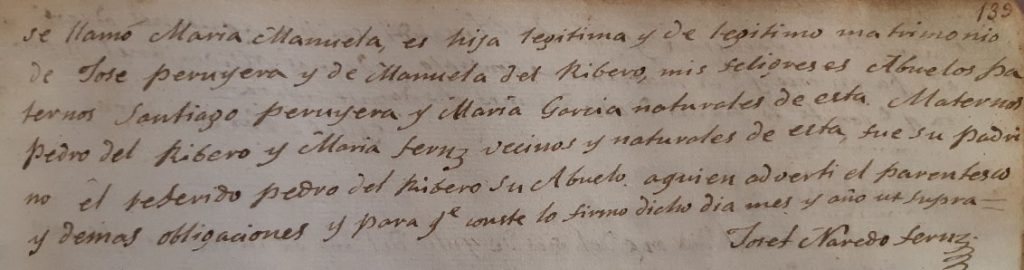 139
se llamó Maria Manuela, es hija legitima y de legitimo matrimonio
de Jose peruyera y de Manuela del Ribero, mis feligreses Abuelos pa
ternos Santiago peruyera y Maria Garcia naturales de esta. Maternos
Pedro del Ribero y Maria fernz vecinos y naturales de esta, fue su padri
no el referido pedro del Ribero su Abuelo. aquien adverti el parentesco
y demas obligaciones y para qe conste lo firmo dicho dia mes y año ut supra=
Josef Naredo fernz